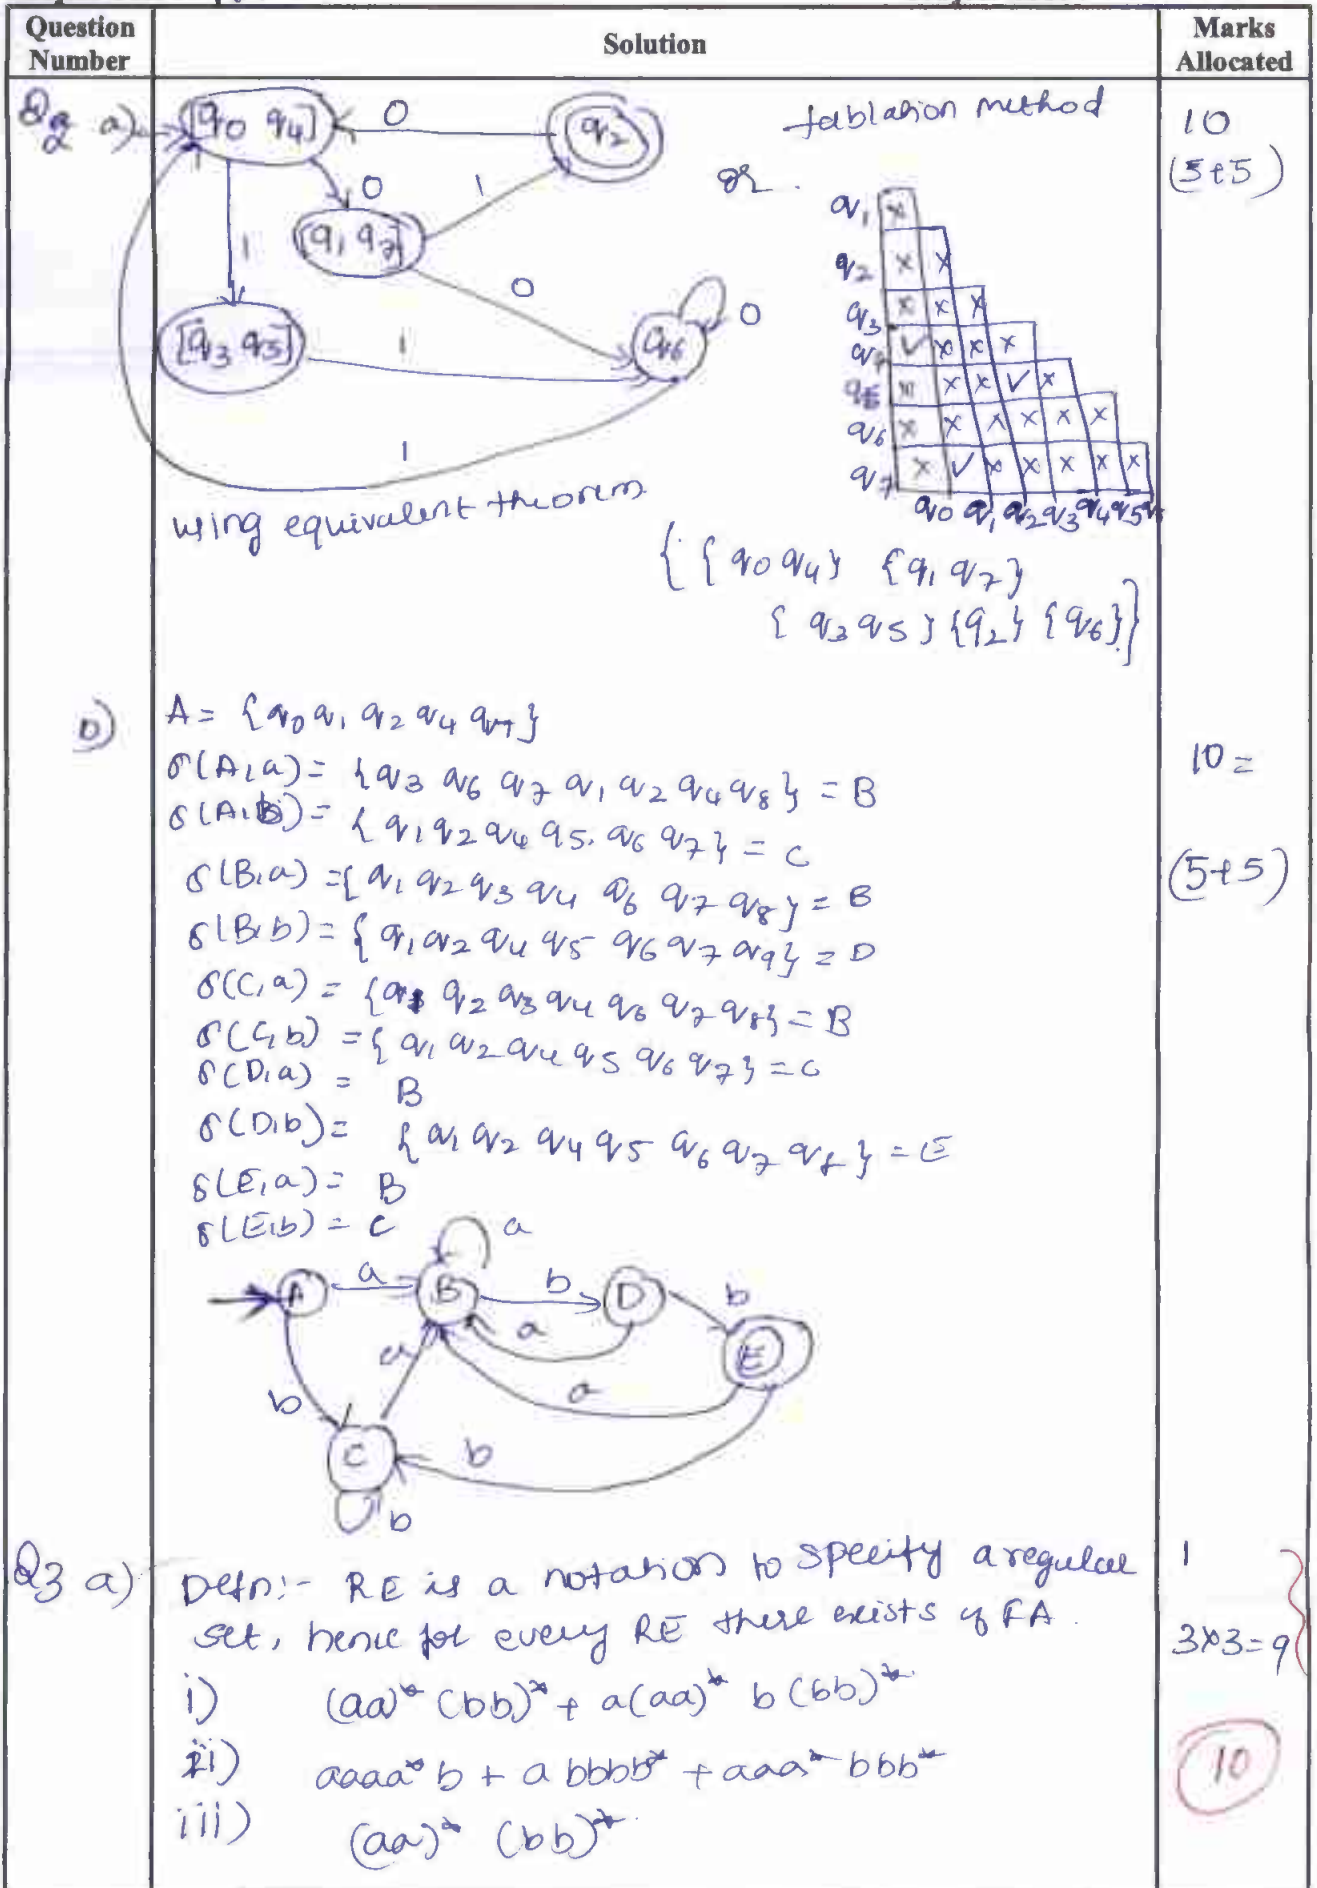 Question Number
Solution
Marks Allocated
Q2 a)
[q0 q4]
0
q2
0
1
[q1 q7]
1
0
[q3 q5]
1
q6
0
1
using equivalent theorem
or
tablation method
q1 x
q2 x x
q3 x x x
q4 ✓ x x x
q5 x x x ✓ x
q6 x x x x x x
q7 x ✓ x x x x x
q0 q1 q2 q3 q4 q5
{ {q0 q4} {q1 q7}
{q3 q5} {q2} {q6} }
10
(5+5)
b)
A = {q0 q1 q2 q4 q7}
δ(A,a) = {q3 q6 q7 q1 q2 q4 q8} = B
δ(A,b) = {q1 q2 q4 q5, q6 q7} = C
δ(B,a) = {q1 q2 q3 q4 q6 q7 q8} = B
δ(B,b) = {q1 q2 q4 q5 q6 q7 q9} = D
δ(C,a) = {q1 q2 q3 q4 q6 q7 q8} = B
δ(C,b) = {q1 q2 q4 q5 q6 q7} = C
δ(D,a) = B
δ(D,b) = {q1 q2 q4 q5 q6 q7 qf} = E
δ(E,a) = B
δ(E,b) = C
10 =
(5+5)
a
A a B b D b
a
a
E
a
b
C b
b
Q3 a)
Defn:- RE is a notation to specify a regular
set, henc for every RE there exists of FA.
i) (aa)* (bb)* + a(aa)* b(bb)*
ii) aaaa* b + a bbbb* + aaa* bbb*
iii) (aa)* (bb)*
1
3x3=9
10